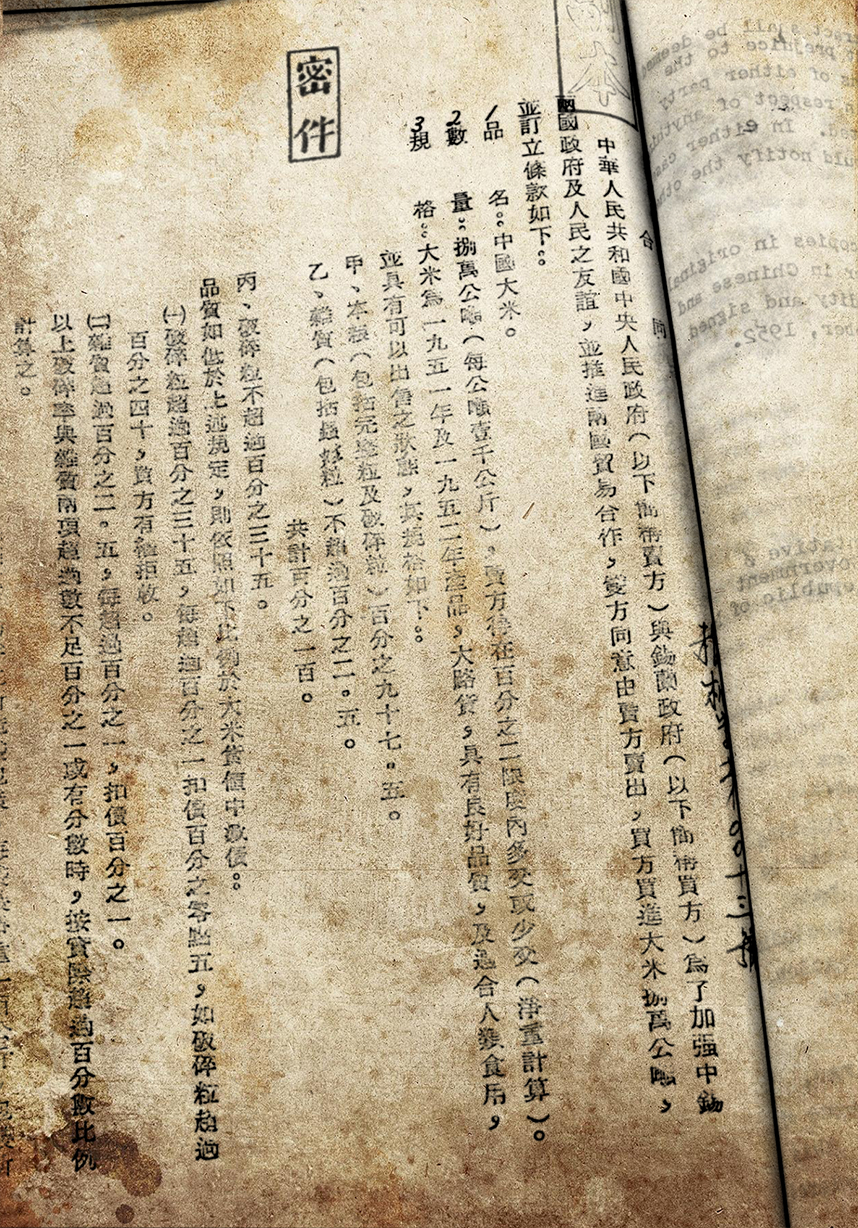 密件
合同
中華人民共和國中央人民政府（以下簡稱賣方）與錫蘭政府（以下簡稱買方）爲了加强中錫
兩國政府及人民之友誼，並推進兩國貿易合作，雙方同意由賣方賣出，買方買進大米捌萬公噸，
並訂立條款如下：
1品名：中國大米。
2數量：捌萬公噸（每公噸壹千公斤），賣方得在百分之二限度內多交或少交（淨重計算）。
3規格：大米爲一九五一年及一九五二年產品，大路貨，具有良好品質，及適合人類食用，
並具有可以出售之狀態，其規格如下：
甲、本粮（包括完整粒及破碎粒）百分之九十七。五。
乙、雜質（包括）不超過百分之二。五。
共計百分之一百。
丙、破碎粒不超過百分之三十五。
品質如低於上述規定，則依照如下比例於大米貨值中減價：
㈠破碎粒超過百分之三十五，每超過百分之一扣價百分之零點五，如破碎粒超過
百分之四十，買方有權拒收。
㈡雜質超過百分之二。五，每超過百分之一，扣價百分之一。
以上破碎率與雜質兩項超過數不足百分之一或有分數時，按實際超過百分數比例
計算之。
ract shall be deeme
prejudice to the
s of either party
respect of anythi
ed. In either case
uld notify the othe
opies in original
r in Chinese and
dity and signed
ber, 1952.
tative
Government
epublic of